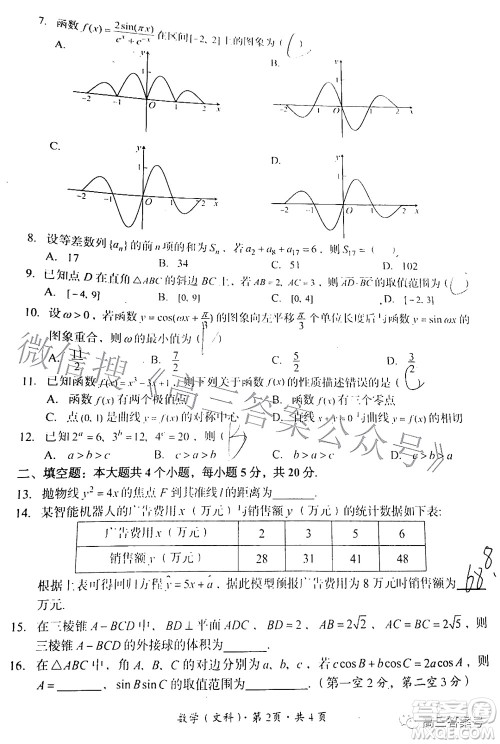 7. 函数 f(x) = 2sin(πx) / (eˣ + e⁻ˣ) 在区间[-2, 2]的图象为（ ）
A. B.
C. D.
8. 设等差数列{aₙ}的前n项和为Sₙ，若a₂ + a₈ + a₁₇ = 6，则S₁₇ =（ ）
A. 17 B. 34 C. 51 D. 102
9. 已知点D在直角△ABC的斜边BC上，若AB = 2，AC = 3，则AD·BC的取值范围为（
A. [-4, 9] B. [0, 9] C. [0, 4] D. [-2, 3]
10. 设ω>0，若函数y = cos(ωx + π/3)的图象向左平移π/3个单位长度后与函数y = sinωx
的图象重合，则ω的最小值为（ ）
A. 11/2 B. 7/2 C. 5/2 D. 3/2
11. 已知函数 则下列关于函数f(x)的性质描述错误的是（
A. 函数f(x)有两个极值点
C. 点(0, 1)是曲线 的对称中心 y = f(x)的切线
12. 已知2ᵃ = 6，3ᵇ = 12，4ᶜ = 20，则（ ）
A. b>a>c D. c>b>a
二、填空题：本大题共4个小题，每小题5分，共20分.
13. 抛物线y² = 4x的焦点F到其准线l的距离为
14. 某智能机器人的广告费用x（万元）与销售额y（万元）的统计数据如下表：
广告费用x（万元） 2 3 5 6
销售额y（万元） 28 31 41 48
根据上表可得回归方程ŷ = 5x + a，据此模型预报广告费用为8万元时销售额为
万元.
68 8
15. 在三棱锥A-BCD中，BD⊥平面ADC，BD = 2，AB = 2√2，AC = BC = 2√5，则
三棱锥A-BCD的外接球的体积为
16. 在△ABC中，角A、B、C的对边分别为a、b、c，若ccosB + bcosC = 2acosA，则
A = ，sinBsinC的取值范围为 .（第一空2分，第二空3分）
数学（文科）·第2页·共4页
微信搜《高三答案公众号》
高三答案号